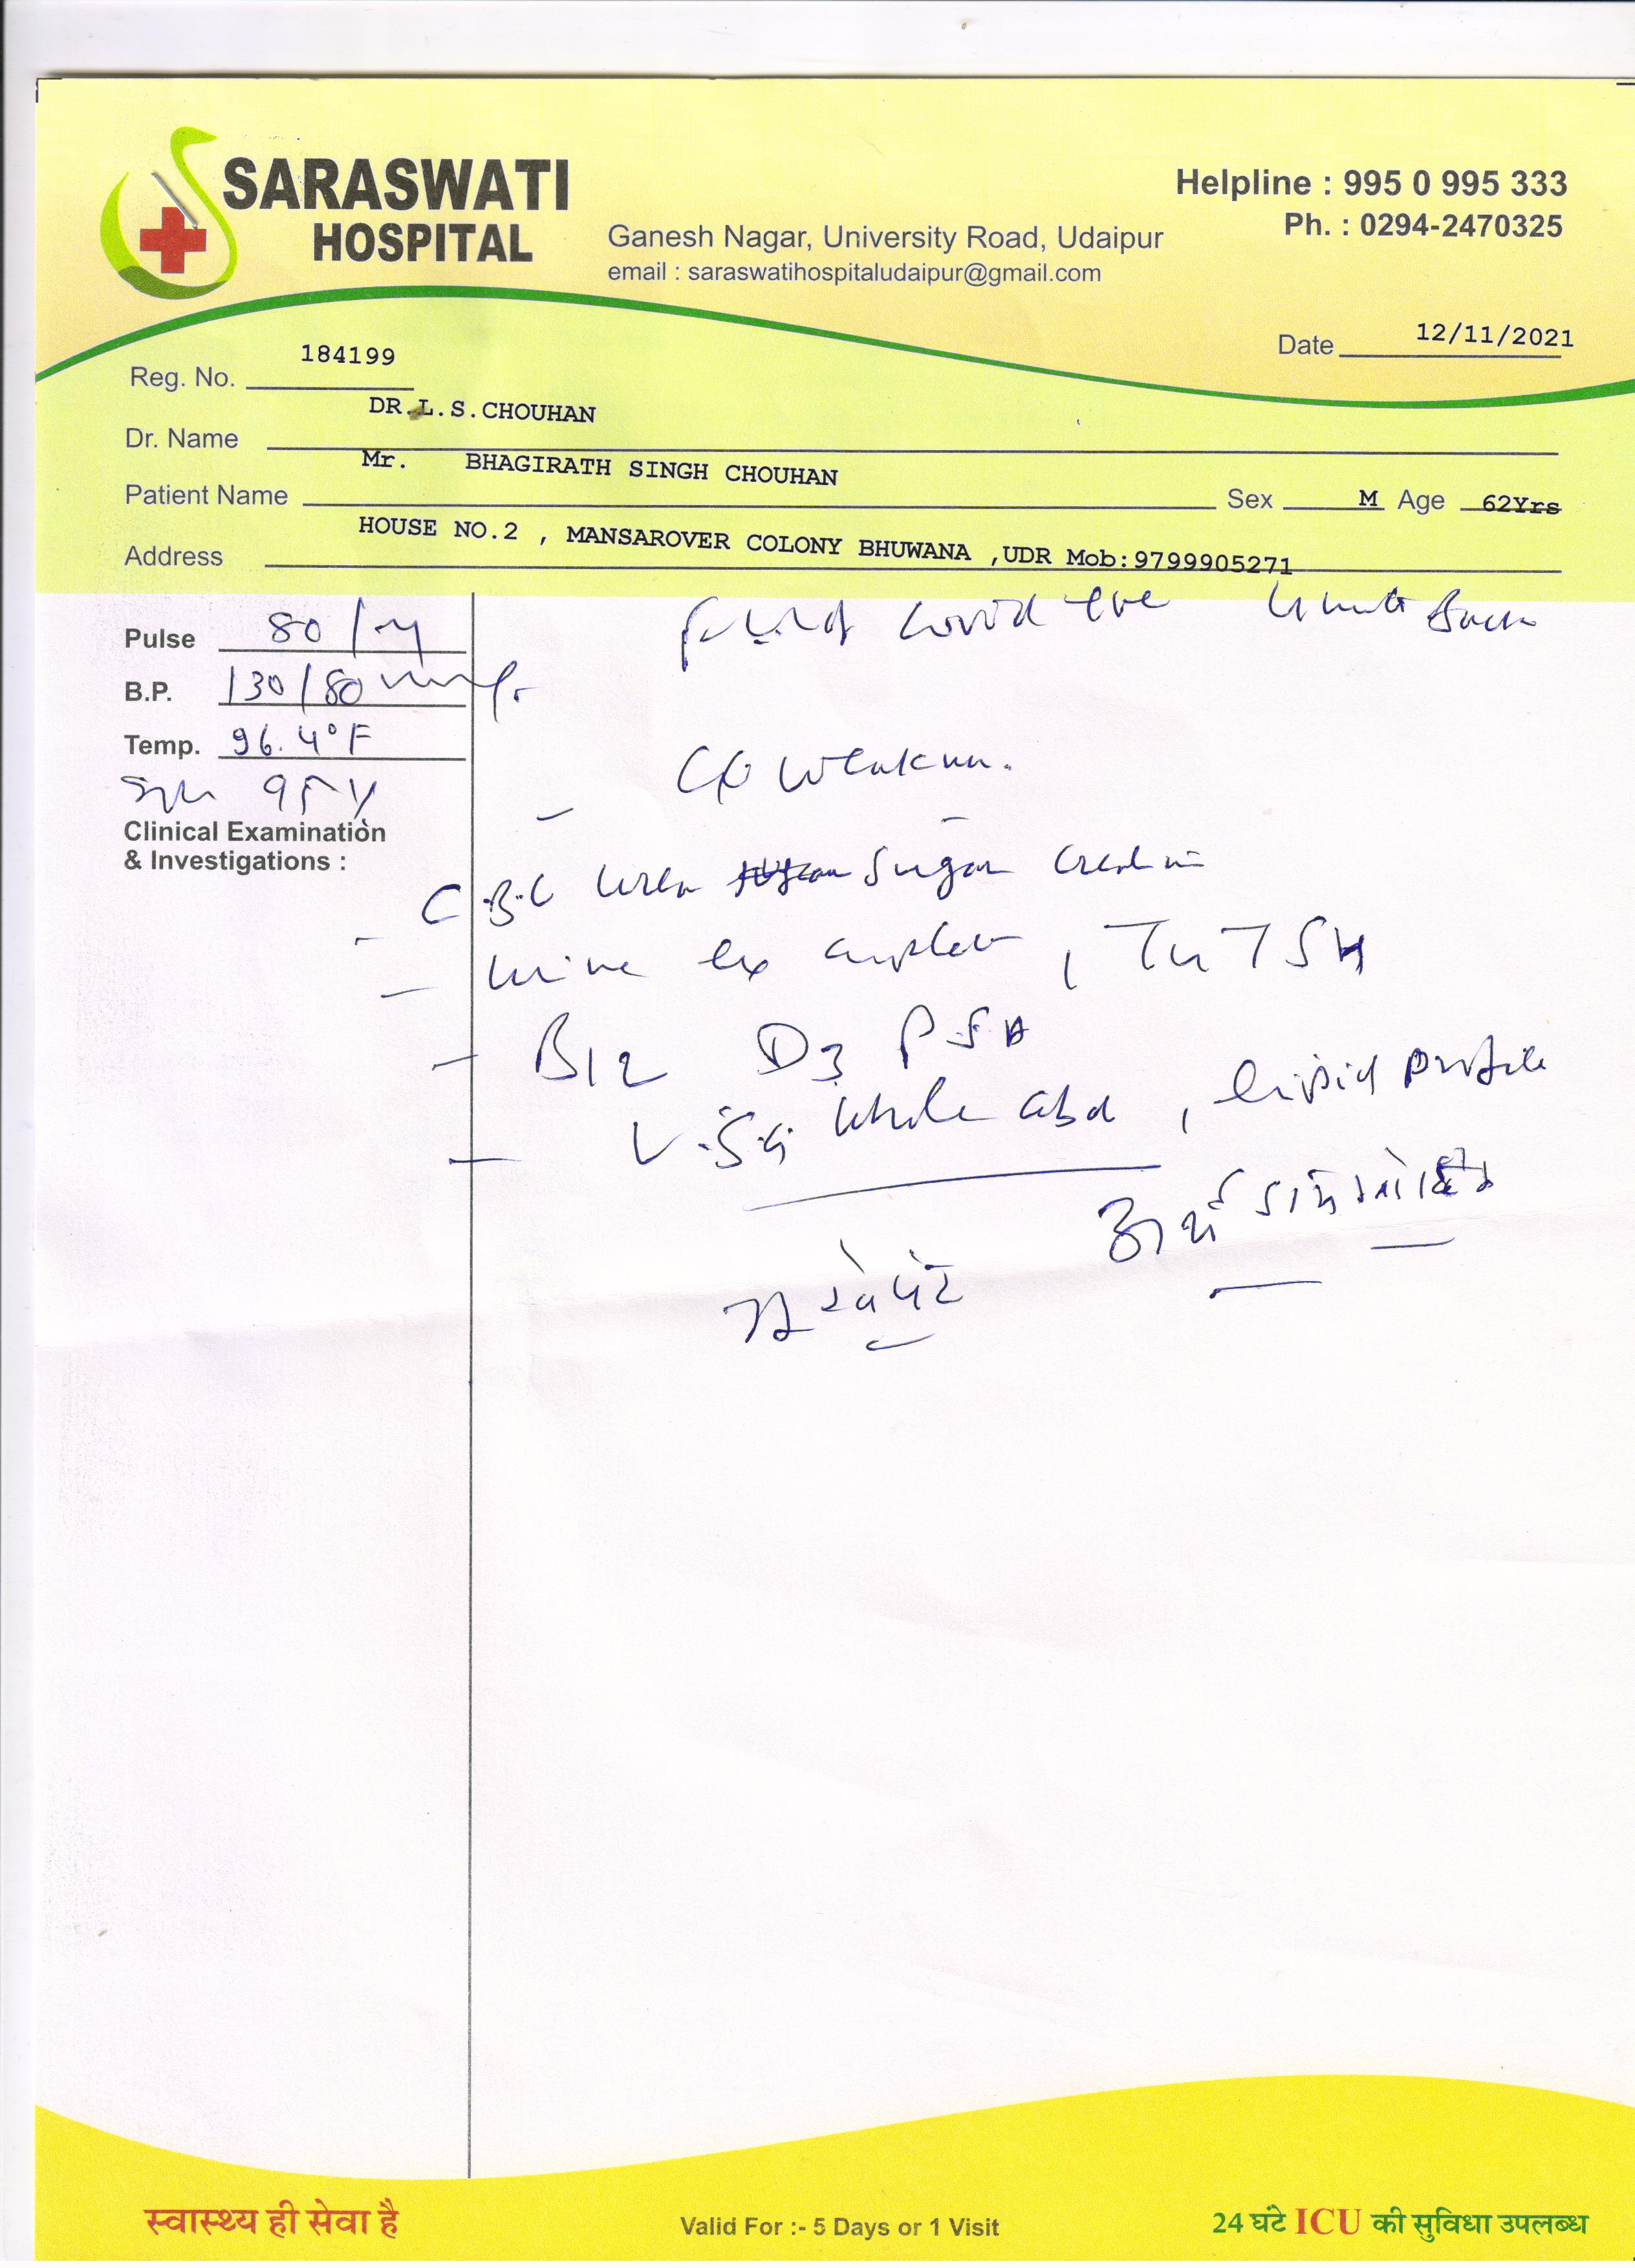 SARASWATI
HOSPITAL
Ganesh Nagar, University Road, Udaipur
email : saraswatihospitaludaipur@gmail.com
Helpline : 995 0 995 333
Ph. : 0294-2470325
Date 12/11/2021
Reg. No. 184199
Dr. Name DR.L.S.CHOUHAN
Patient Name Mr. BHAGIRATH SINGH CHOUHAN Sex M Age 62Yrs
Address HOUSE NO.2 , MANSAROVER COLONY BHUWANA ,UDR Mob:9799905271
Pulse 80/m
B.P. 130/80
Temp. 96.4°F
Clinical Examination
& Investigations :
covid +ve Back
C/o
C.B.C Urea Sugar
Urine ex , TSH
B12 D3 PSA
U.S.G whole abd , lipid profile
स्वास्थ्य ही सेवा है
Valid For :- 5 Days or 1 Visit
24 घंटे ICU की सुविधा उपलब्ध